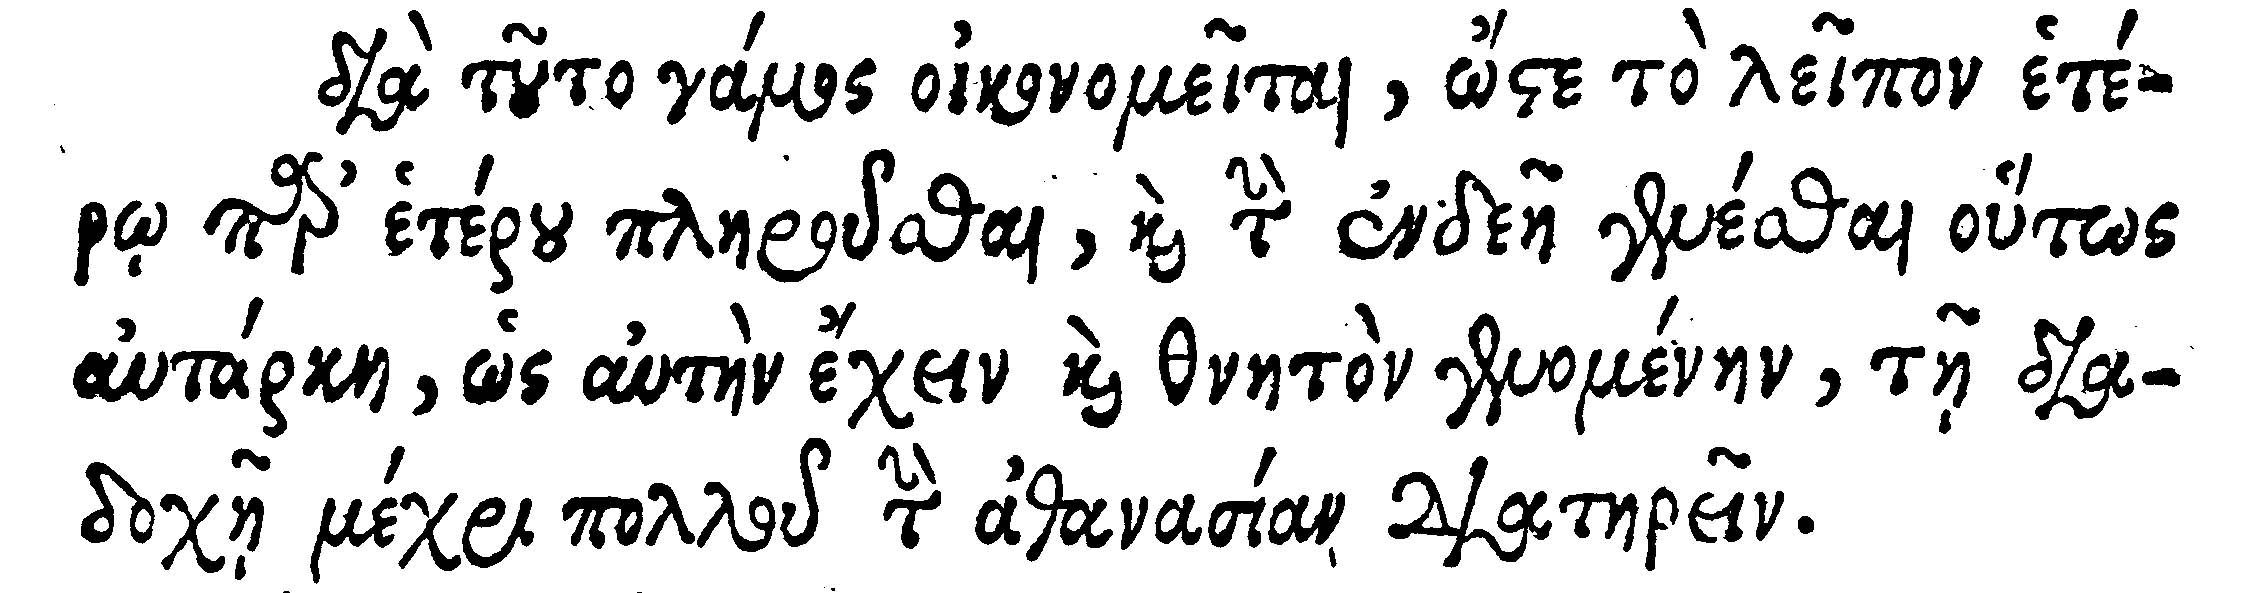 διὰ τοῦτο γάμος οἰκονομεῖται, ὥστε τὸ λεῖπον ἑτέ-
ρῳ παρ' ἑτέρου πληροῦσθαι, καὶ τὴν ἐνδεῆ γενέσθαι οὕτως
αὐτάρκη, ὡς αὐτὴν ἔχειν καὶ θνητὸν γενομένην, τῇ δια-
δοχῇ μέχρι πολλοῦ τὴν ἀθανασίαν διατηρεῖν.